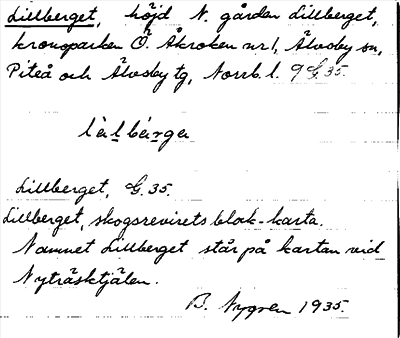 Lillberget, höjd N. gården Lillberget,
kronoparken Ö. Åkroken nr 1, Älvsby sn,
Piteå och Älvsby tg, Norrb. l. G. 35.
lìlbárga
Lillberget, G. 35.
Lillberget, skogsrevirets blok-karta.
Namnet Lillberget står på kartan vid
Nyträsktjälen.
B. Nygren 1935.